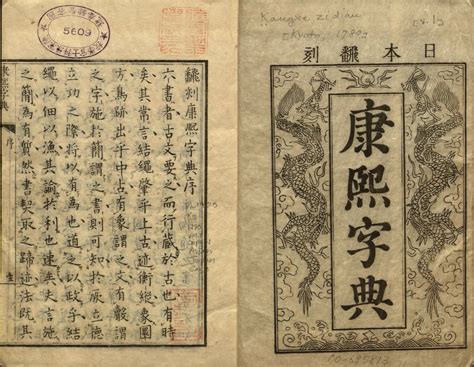 Kangxi zidian
日本飜刻
康熙字典
5609
飜刻康熙字典序
六書者古文要之而行藏於古也有時
矣其常言結繩肇乎上古迹衡縱象圖
方鳥跡出乎中古有像謂之文有殽謂
之字施於簡謂之書則可知於厥立德
立功之際將以有為也道之以政乎結
繩以佃以漁其諭於利也速矣史言施
之簡為有然書契取之歸迹法既其
序